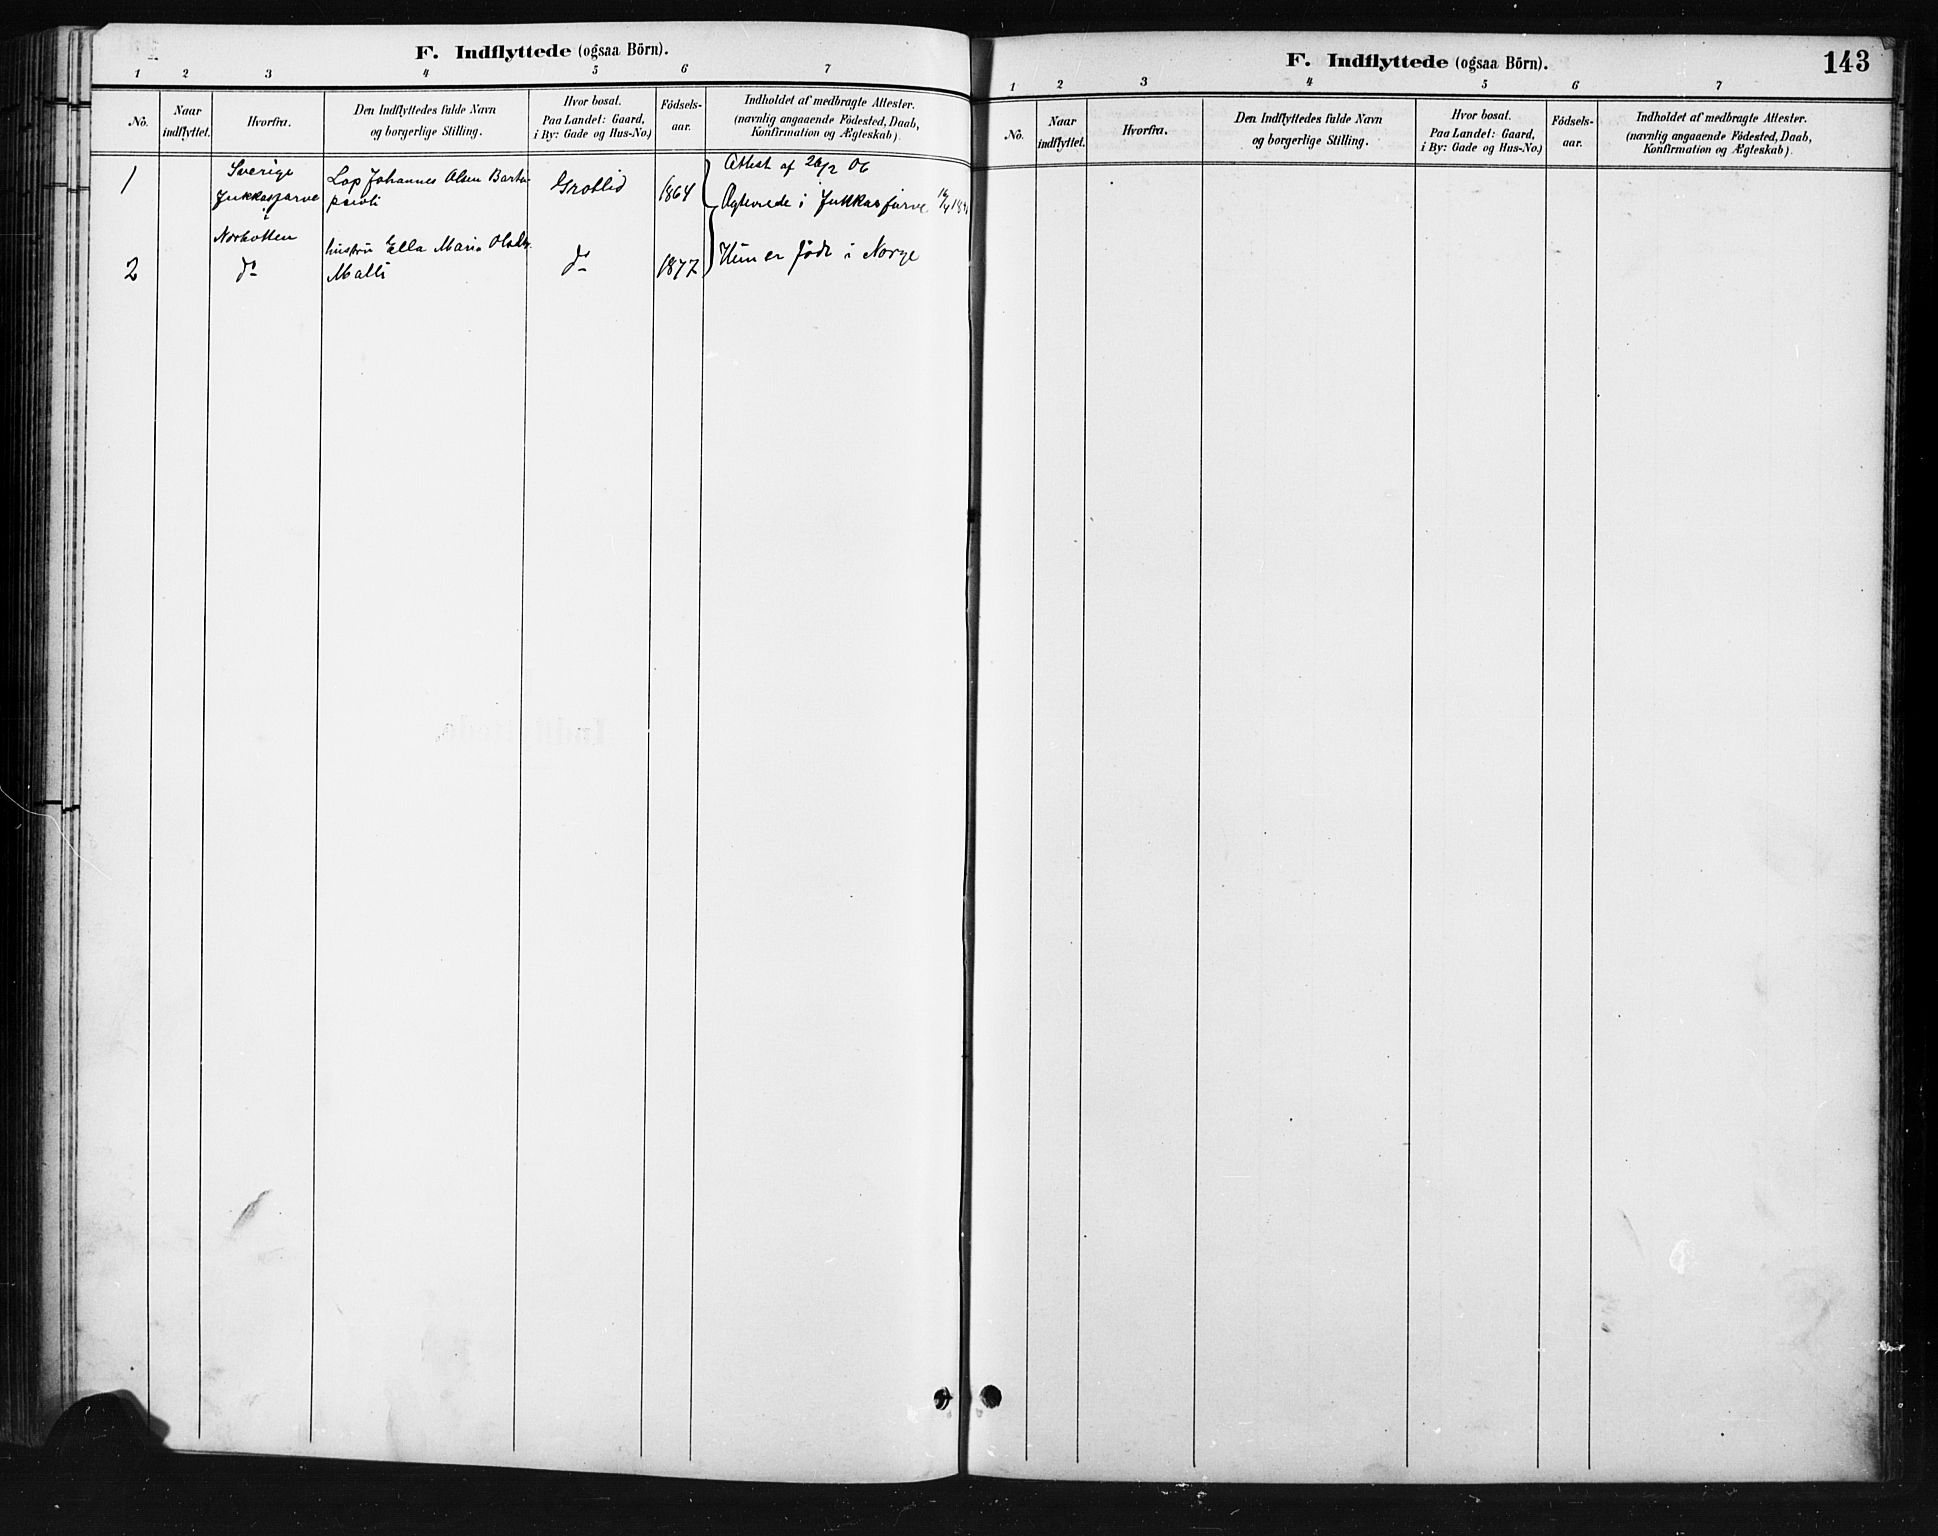 F. Indflyttede (ogsaa Börn).
1 2 3 4 5 6 7
No.
Naar
indflyttet.
Hvorfra.
Den Indflyttedes fulde Navn
og borgerlige Stilling.
Hvor bosat.
Paa Landet: Gaard,
i By: Gade og Hus-No.)
Födsels-
aar.
Indholdet af medbragte Attester.
(navnlig angaaende Födested, Daab,
Konfirmation og Ægteskab).
1
Sverige
Jukkasjarve
i
Norbotten
Lap Johannes Olsen
Grotlid
1864
Attest af 26/2 06
Ægteviede i Jukkasjarve
2
do
hustru Ella Maria
Matti
do
1877
Hun er födt i Norge
F. Indflyttede (ogsaa Börn).
143
1 2 3 4 5 6 7
No.
Naar
indflyttet.
Hvorfra.
Den Indflyttedes fulde Navn
og borgerlige Stilling.
Hvor bosat.
Paa Landet: Gaard,
i By: Gade og Hus-No.)
Födsels-
aar.
Indholdet af medbragte Attester.
(navnlig angaaende Födested, Daab,
Konfirmation og Ægteskab).